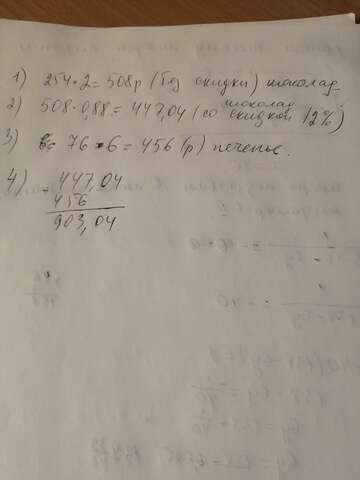 1) 254·2=508р (без скидки) шоколад.
шоколад
2) 508·0,88=447,04 (со скидкой 12%)
3) 76·6=456 (р) печенье.
4) 447,04
456
903,04